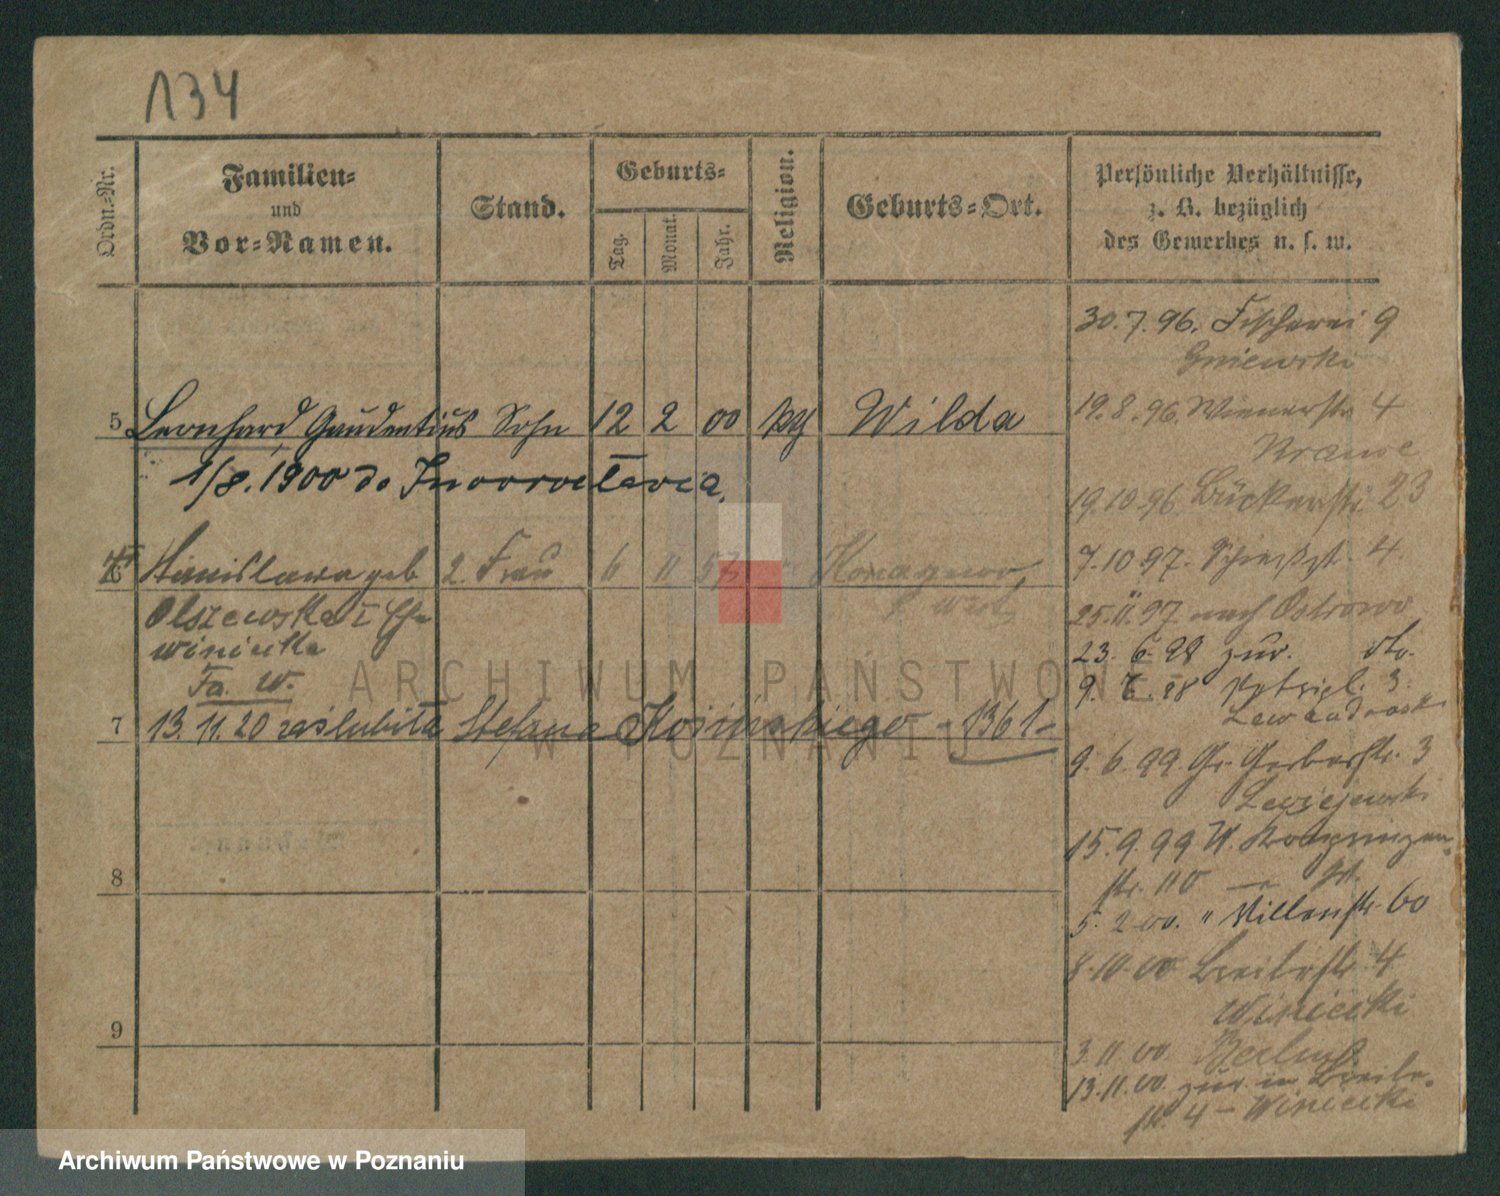 134
Ordn.-Nr.
Familien-
und
Vor-Namen.
Stand.
Geburts-
Tag.
Monat.
Jahr.
Religion.
Geburts-Ort.
Persönliche Verhältnisse,
z. B. bezüglich
des Gewerbes u. s. w.
5 Leonhard Gaudentius Sohn 12 2 00 Wilda
1/8. 1900 do
6 Stanislawa geb 2. Frau 6 11 57
Olszewska I Ehe
Winiecka
Fa. W.
7 13. 11. 20 zaślubiła Stefana Kosińskiego - 1361 -
8
9
30. 7. 96. Fischerei 9
Gniewski
19. 8. 96. Wienerstr 4
Krause
19. 10. 96 Bückerstr. 23
7. 10. 97. Schießst. 4.
25. 11. 97 nach Ostrowo
23. 6. 98 zur.
9. 98 3.
Lewandowski
9. 6. 99 Gr. Gerberstr. 3
15. 9. 99 W. Kronprinzen-
str. 110
5. 2. 00. " Villenstr. 60
8. 10. 00 Breitestr. 4
Winiecki
3. 11. 00 Berlin
13. 11. 00. zur. in Breite-
str. 4 - Winiecki
ARCHIWUM PAŃSTWOWE
W POZNANIU
Archiwum Państwowe w Poznaniu